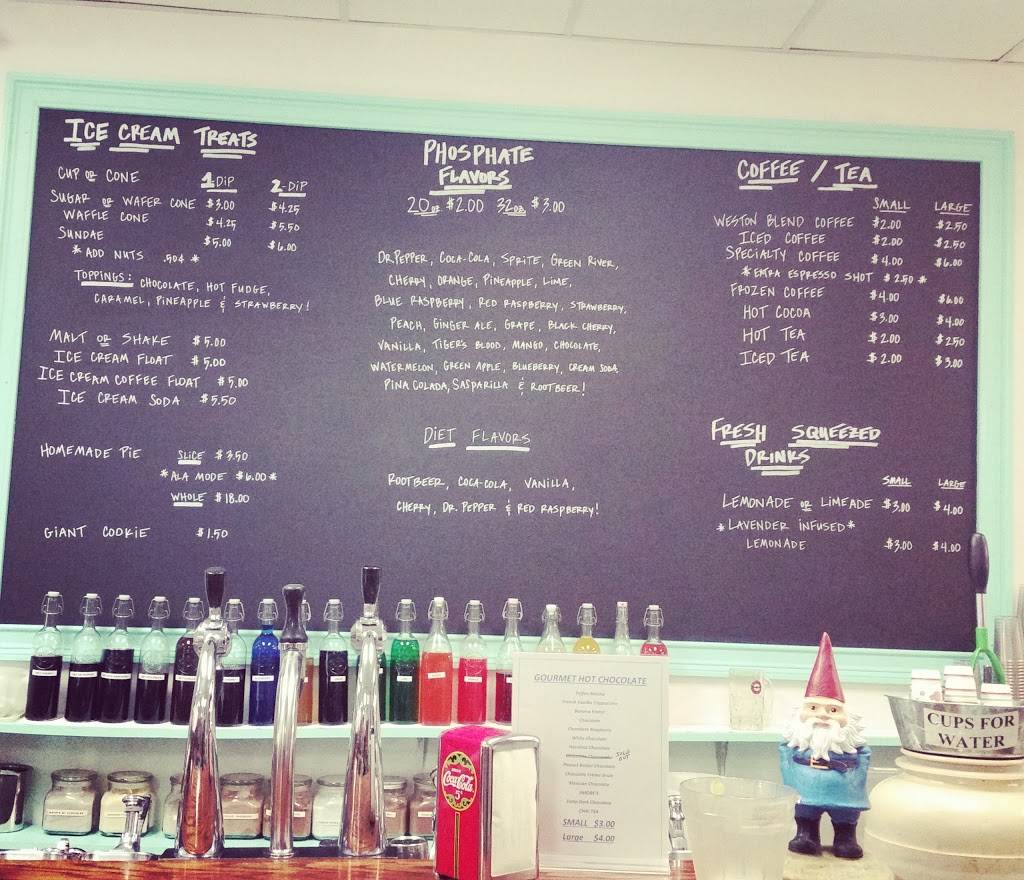 ICE CREAM TREATS
CUP OR CONE 1-DIP 2-DIP
SUGAR OR WAFER CONE $3.00 $4.25
WAFFLE CONE $4.25 $5.50
SUNDAE $5.00 $6.00
*ADD NUTS .50¢*
TOPPINGS: CHOCOLATE, HOT FUDGE,
CARAMEL, PINEAPPLE & STRAWBERRY!
MALT OR SHAKE $5.00
ICE CREAM FLOAT $5.00
ICE CREAM COFFEE FLOAT $5.00
ICE CREAM SODA $5.50
HOMEMADE PIE SLICE $3.50
*ALA MODE $6.00*
WHOLE $18.00
GIANT COOKIE $1.50
PHOSPHATE
FLAVORS
20oz $2.00 32oz $3.00
DR.PEPPER, COCA-COLA, SPRITE, GREEN RIVER,
CHERRY, ORANGE, PINEAPPLE, LIME,
BLUE RASPBERRY, RED RASPBERRY, STRAWBERRY,
PEACH, GINGER ALE, GRAPE, BLACK CHERRY,
VANILLA, TIGER'S BLOOD, MANGO, CHOCOLATE,
WATERMELON, GREEN APPLE, BLUEBERRY, CREAM SODA
PINA COLADA, SASPARILLA & ROOTBEER!
DIET FLAVORS
ROOTBEER, COCA-COLA, VANILLA,
CHERRY, DR. PEPPER & RED RASPBERRY!
COFFEE / TEA
SMALL LARGE
WESTON BLEND COFFEE $2.00 $2.50
ICED COFFEE $2.00 $2.50
SPECIALTY COFFEE $4.00 $6.00
*EXTRA ESPRESSO SHOT $2.50*
FROZEN COFFEE $4.00 $6.00
HOT COCOA $3.00 $4.00
HOT TEA $2.00 $2.50
ICED TEA $2.00 $3.00
FRESH SQUEEZED
DRINKS
SMALL LARGE
LEMONADE OR LIMEADE $3.00 $4.00
*LAVENDER INFUSED*
LEMONADE $3.00 $4.00
GOURMET HOT CHOCOLATE
Toffee Mocha
French Vanilla Cappuccino
Chocolate
Chocolate Raspberry
White Chocolate
Hazelnut Chocolate
SOLD OUT
Peanut Butter Chocolate
Mexican Chocolate
SMORE'S
Dark Chocolate
CHAI TEA
SMALL $3.00
Large $4.00
DRINK
Coca-Cola
5¢
CUPS FOR
WATER